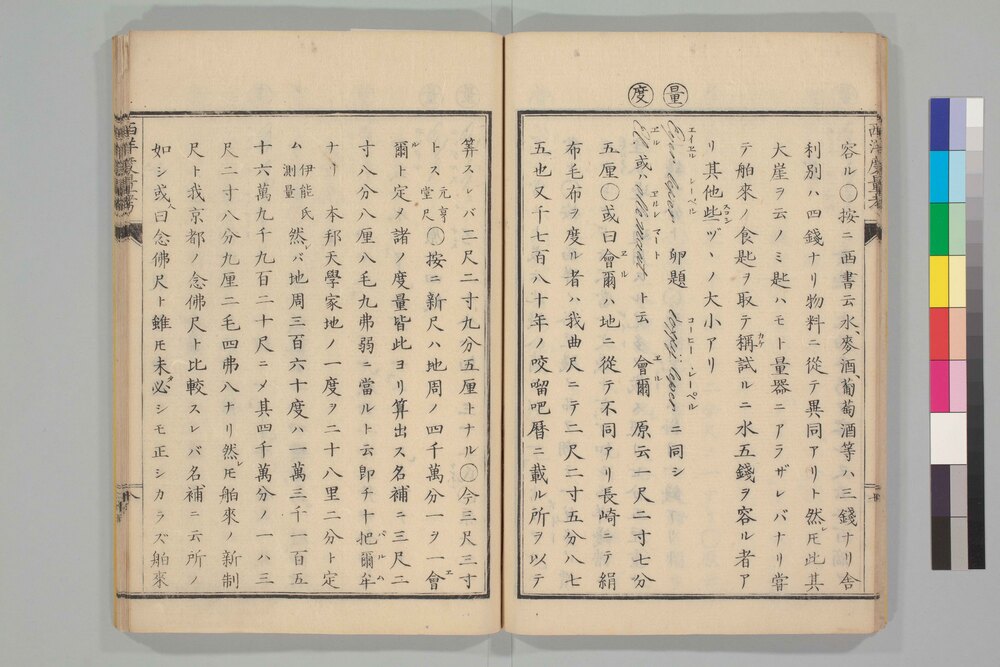 量
度
容ル〇按ニ西書云水、麥酒、葡萄酒等ハ三錢ナリ舍
利別ハ四錢ナリ物料ニ從テ異同アリト然レ𪜈此其
大崖ヲ云ノミ匙ハモト量器ニアラザレバナリ甞
テ舶來ノ食匙ヲ取テ稱試ルニ水五錢ヲ容ル者ア
リ其他些ヅヽノ大小アリ
エイエル レーペル
卵題
コーヒー レーペル
ニ同シ
エル
或ハ
エルレ マート
ト云 會爾 原云一尺二寸七分
五厘〇或曰會爾ハ地ニ從テ不同アリ長崎ニテ絹
布毛布ヲ度ル者ハ我曲尺ニテ二尺二寸五分八七
五也又千七百八十年ノ咬𠺕吧曆ニ載ル所ヲ以テ
西洋度量考
算スレバ二尺二寸九分五厘トナル〇今三尺三寸
トス 元享堂尺 〇按ニ新尺ハ地周ノ四千萬分一ヲ一會
爾ト定メ諸ノ度量皆此ヨリ算出ス名補ニ三尺二
寸八分八厘八毛九弗弱ニ當ルト云即チ十把爾牟
ナリ 本邦天學家地ノ一度ヲ二十八里二分ト定
ム 伊能氏測量 然レバ地周三百六十度ハ一萬三千一百五
十六萬九千九百二十尺ニメ其四千萬分ノ一ハ三
尺二寸八分九厘二毛四弗八ナリ然レ𪜈舶來ノ新制
尺ト我京都ノ念佛尺ト比較スレバ名補ニ云所ノ
如シ或ハ曰念佛尺ト雖𪜈未タ必シモ正シカラズ舶來